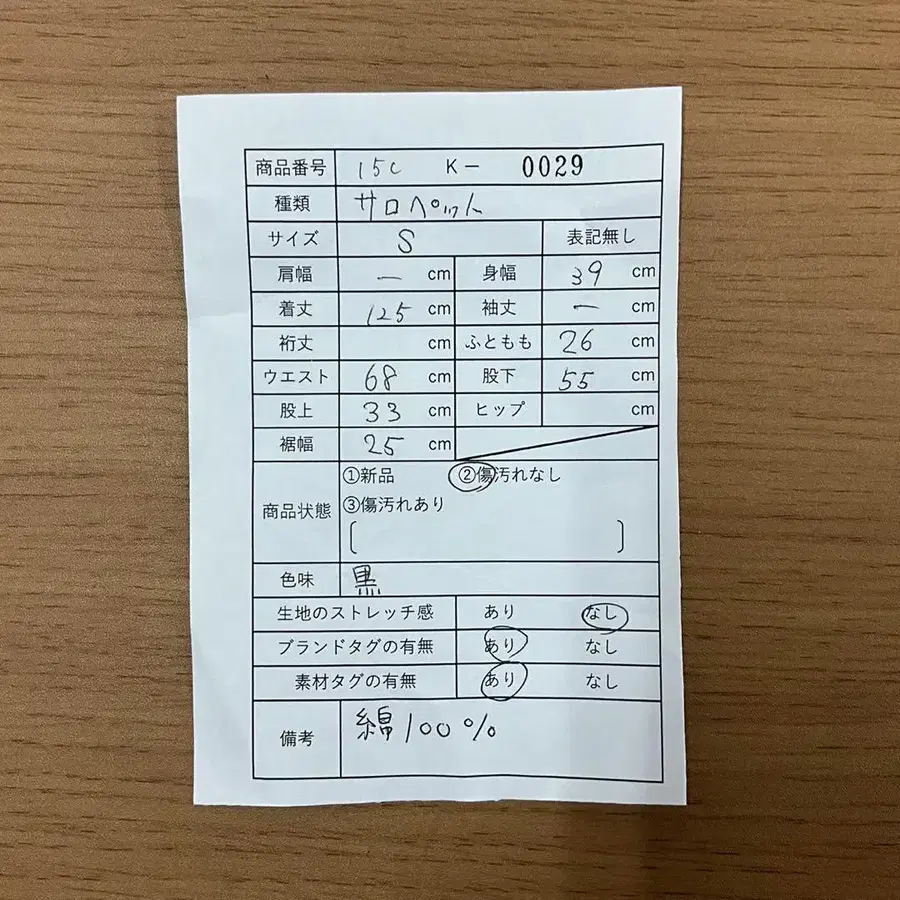 商品番号 15C K- 0029
種類 サロペット
サイズ S 表記無し
肩幅 ー cm 身幅 39 cm
着丈 125 cm 袖丈 ー cm
裄丈 cm ふともも 26 cm
ウエスト 68 cm 股下 55 cm
股上 33 cm ヒップ cm
裾幅 25 cm
商品状態 ①新品 ②傷汚れなし
③傷汚れあり
[ ]
色味 黒
生地のストレッチ感 あり なし
ブランドタグの有無 あり なし
素材タグの有無 あり なし
備考 綿100%